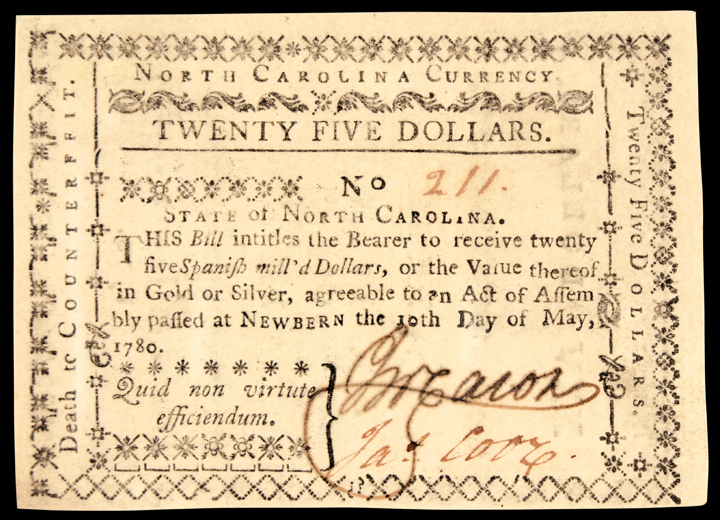 NORTH CAROLINA CURRENCY
TWENTY FIVE DOLLARS.
No 211.
STATE of NORTH CAROLINA.
THIS Bill intitles the Bearer to receive twenty
five Spaniſh mill'd Dollars, or the Value thereof
in Gold or Silver, agreeable to an Act of Aſſem
bly paſſed at NEWBERN the 10th Day of May,
1780.
Quid non virtute
efficiendum.
Jas Coor.
Death to COUNTERFFIT.
Twenty Five DOLLARS.